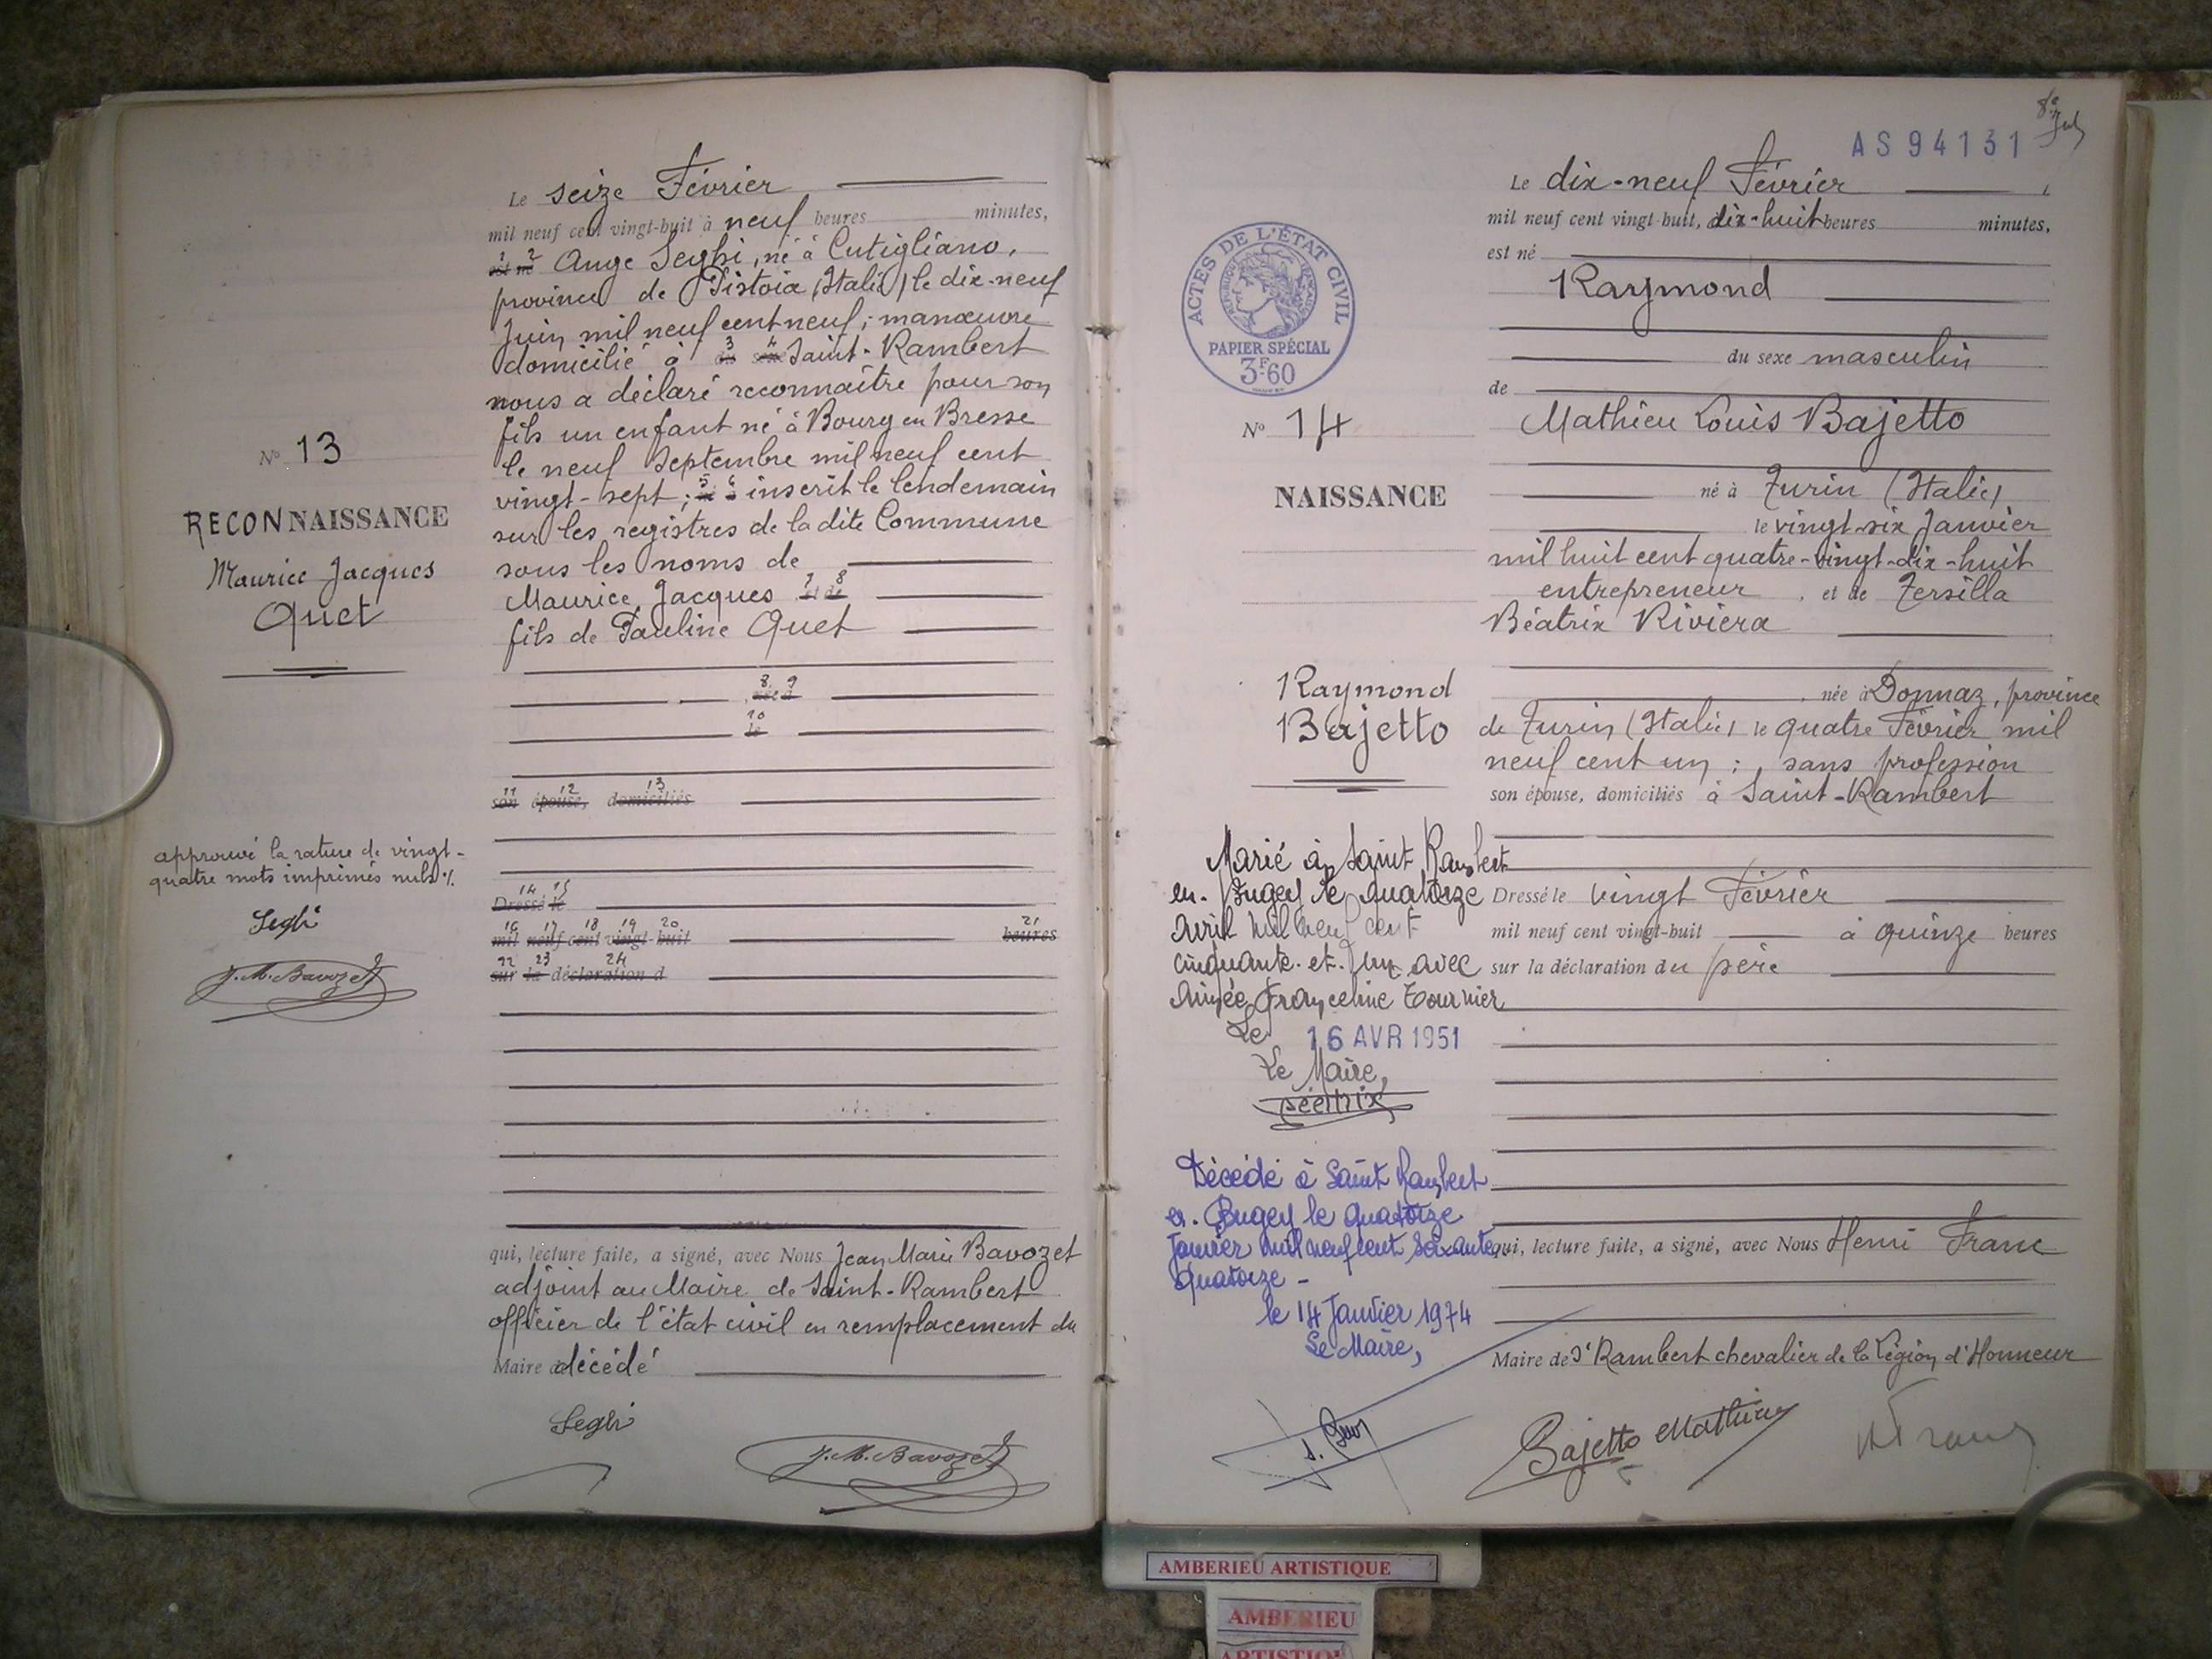 N° 13
RECONNAISSANCE
Maurice Jacques
Quet
approuvé la rature de vingt-
quatre mots imprimés nuls %.
Seghi
J. M. Bavozet
Le seize Février
mil neuf cent vingt-huit à neuf heures minutes,
1 2
est né Ange Seghi, né à Cutigliano,
province de Pistoia (Italie) le dix-neuf
Juin mil neuf cent neuf; manœuvre
3 4
domicilié à Saint-Rambert
nous a déclaré reconnaître pour son
fils un enfant né à Bourg en Bresse
le neuf Septembre mil neuf cent
5 6
vingt-sept; inscrit le lendemain
sur les registres de la dite Commune
sous les noms de
7 8
Maurice, Jacques et de
fils de Pauline Quet
8 9
née à
10
le
11 12 13
son épouse, domiciliés
14 15
Dressé le
16 17 18 19 20 21
mil neuf cent vingt-huit heures
22 23 24
sur la déclaration d
qui, lecture faite, a signé, avec Nous Jean Marie Bavozet
adjoint au Maire de Saint-Rambert
officier de l'état civil en remplacement du
Maire décédé
Seghi
J. M. Bavozet
AS 94131
ACTES DE L'ÉTAT CIVIL
RÉPUBLIQUE FRANÇAISE
PAPIER SPÉCIAL
3F60
N° 14
NAISSANCE
Raymond
Bajetto
Marié à Saint Rambert
en-Bugey le quatorze
Avril mil neuf cent
cinquante-et-un avec
Aimée Franceline Tournier
Le 16 AVR 1951
Le Maire,
Décédé à Saint Rambert
en-Bugey le quatorze
Janvier mil neuf cent soixante
quatorze -
le 14 Janvier 1974
Le Maire,
Le dix-neuf Février
mil neuf cent vingt-huit, dix-huit heures minutes,
est né
Raymond
du sexe masculin
de
Mathieu Louis Bajetto
né à Turin (Italie)
le vingt-six Janvier
mil huit cent quatre-vingt-dix-huit
entrepreneur, et de Tersilla
Béatrix Riviera
née à Donnaz, province
de Turin (Italie) le quatre Février mil
neuf cent un; sans profession
son épouse, domiciliés à Saint-Rambert
Dressé le vingt Février
mil neuf cent vingt-huit à quinze heures
sur la déclaration du père
qui, lecture faite, a signé, avec Nous Henri Franc
Maire de St Rambert chevalier de la Légion d'Honneur
Bajetto Mathieu
H Franc
AMBERIEU ARTISTIQUE
AMBERIEU
ARTISTIQUE